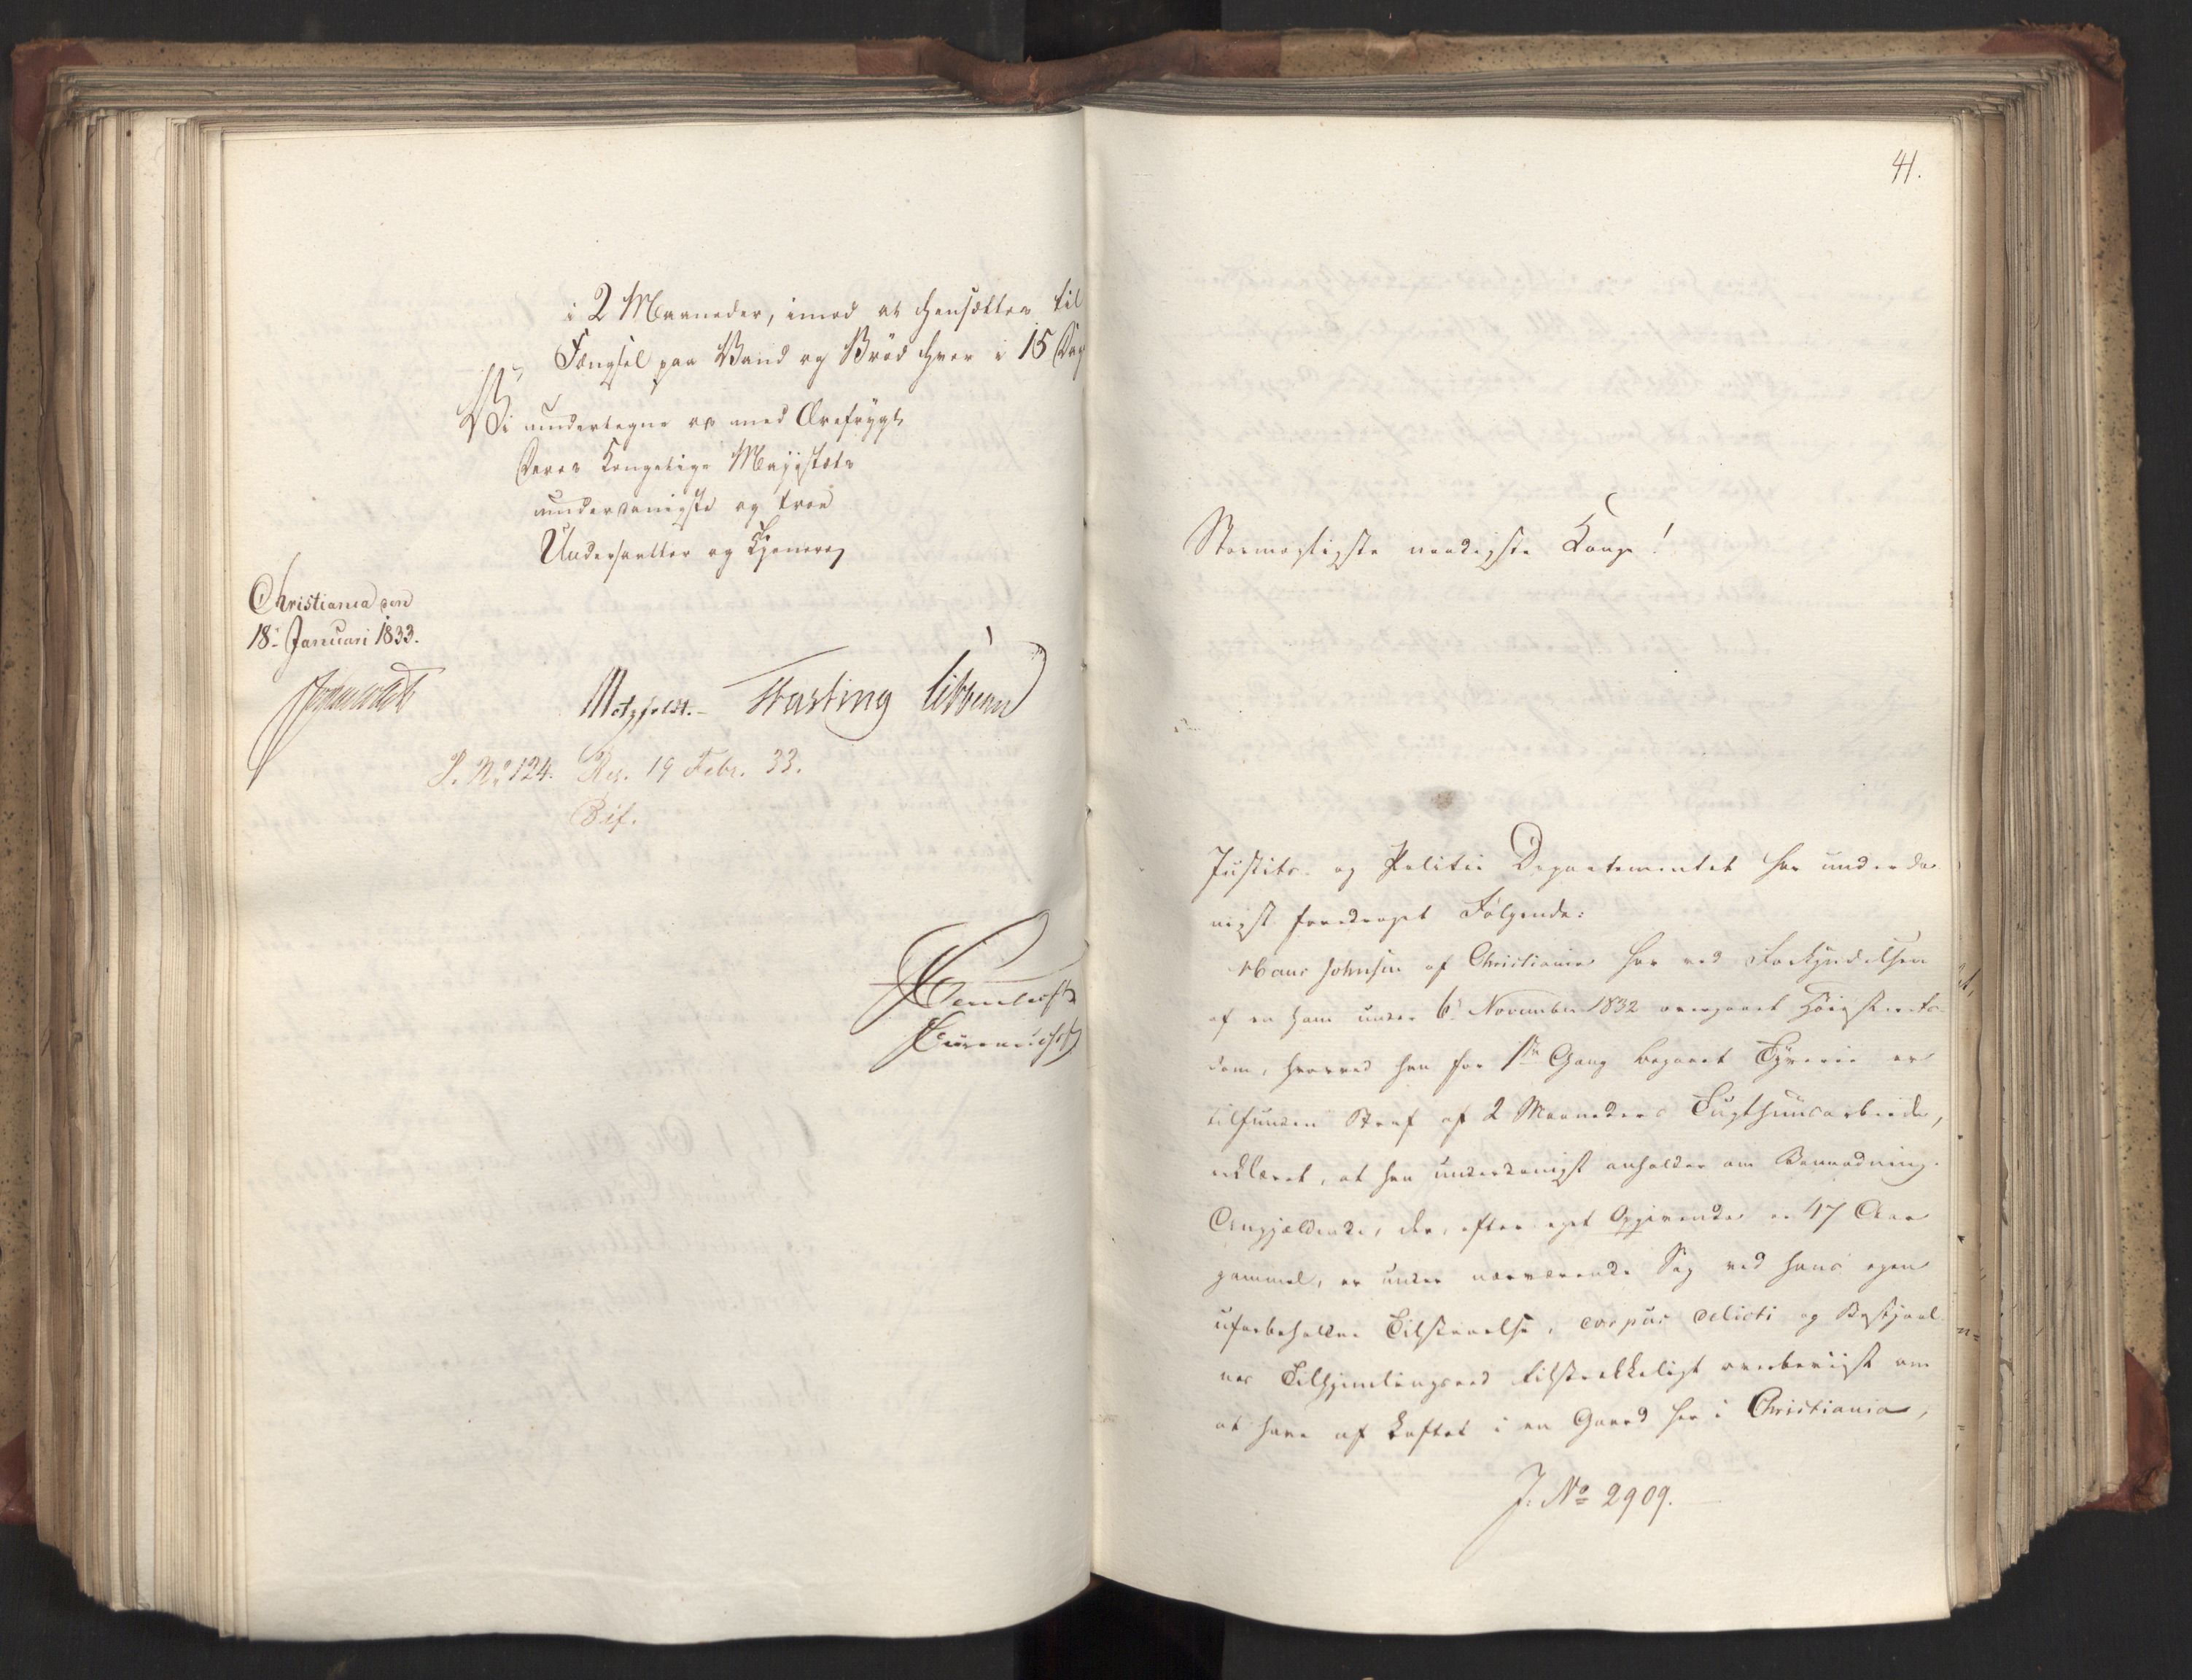 i 2 Maaneder, imod at hensættes til
Fængsel paa Vand og Brød hver i 15 Dag
Vi undertegne os med Ærefrygt
Deres Kongelige Majestæts
underdanigste og troe
Undersaatter og Tjenere
Christiania den
18. Januari 1833.
Motzfeldt. Hasting
J. No 124. Res. 19 Febr. 33.
Bif.
41.
Stormægtigste naadigste Konge!
Justits- og Politie Departementet har underda
nigst foredraget Følgende:
Hans Johnsen af Christiania har ved Forkyndelsen
af en ham under 6. November 1832 overgaaet Høiesterets-
dom, hvorved han for 1ste Gang begaaet Tyverie er
tilfunden Straf af 2 Maaneders Tugthuusarbeide,
erklæret, at han underdanigst anholder om Benaadning.
Angjældende, der, efter eget Opgivende er 47 Aar
gammel, er under nærværende Sag ved hans egen
uforbeholdne Tilstaaelse, corpus delicti og Bestjaal
nes Tilhjemlingseed tilstrækkeligt overbeviist om
at have af Loftet i en Gaard her i Christiania,
J. No 2909.